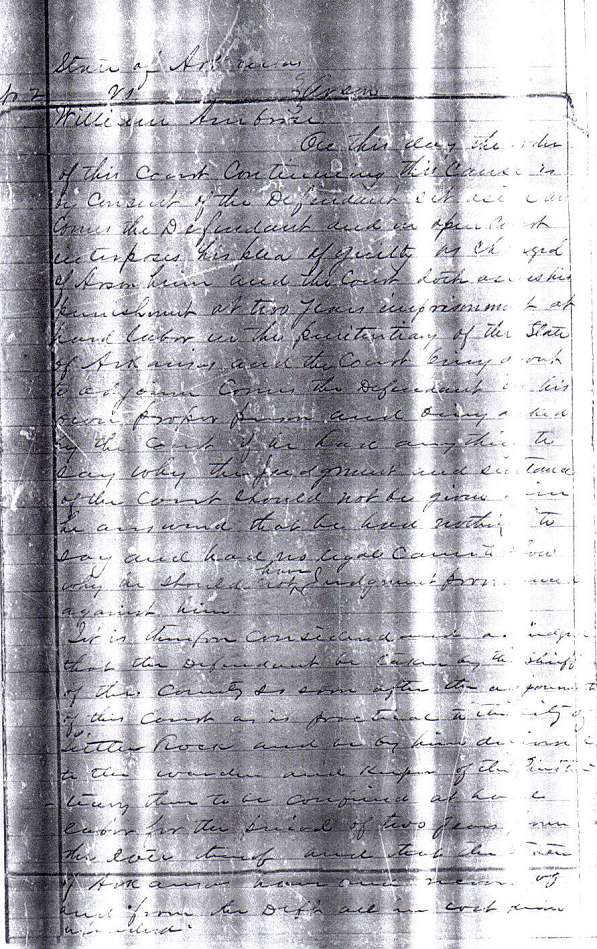 State of Arkansas
vs Arson
William Ambrose
On this day the order
of this Court Continuing this Cause is
Consent of the Defendant set
Comes the Defendant and in open Court
interposes his plea of guilty as charged
of Arson and the Court doth his
punishment at two years imprisonment at
hard labor in the penitentiary of the State
of Arkansas and the Court being about
to adjourn Comes the Defendant in his
own proper person and being asked
by the Court if he had anything to
say why the judgment and sentence
of the Court should not be given
he answered that he had nothing to
say and had no legal Cause to show
why he should not have Judgment pronounced
against him
It is therefore considered and
that the Defendant be taken by the Sheriff
of this County so soon after the
of this Court as is practical to the City of
Little Rock and be by him
to the warden and Keeper of the
then to be confined at hard
labor for the period of two years from
the date thereof and that the State
of Arkansas have and recover of
and from the Deft all in cost